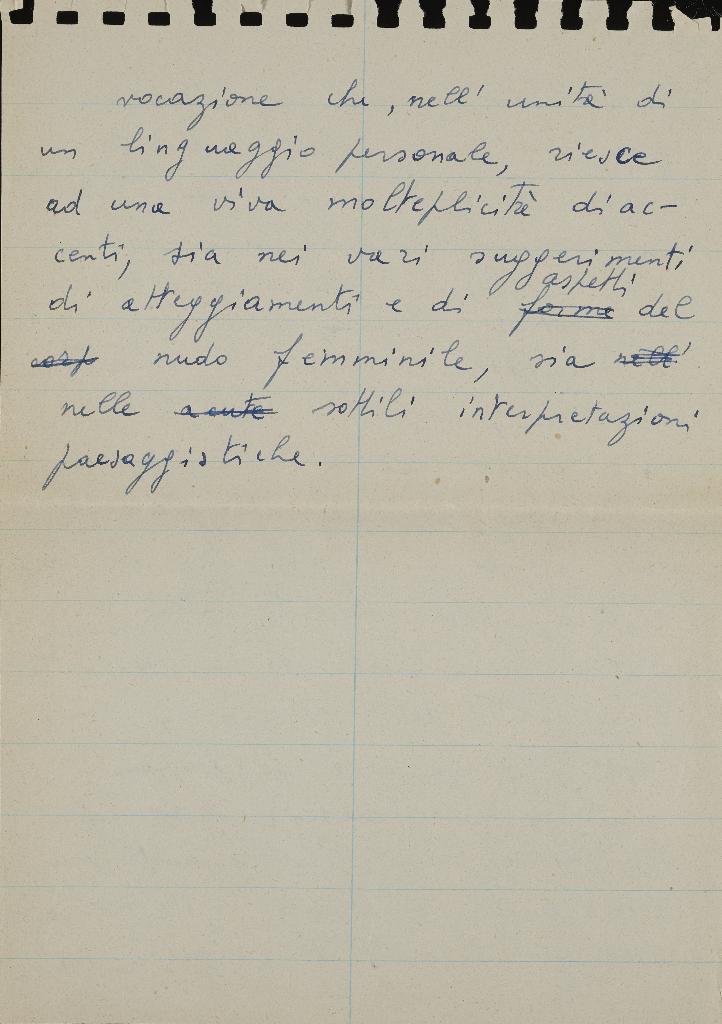 vocazione che, nell' unità di
un linguaggio personale, riesce
ad una viva molteplicità di ac-
centi, sia nei vari suggerimenti
aspetti
di atteggiamenti e di forme del
corp nudo femminile, sia nell'
nelle acute sottili interpretazioni
paesaggistiche.